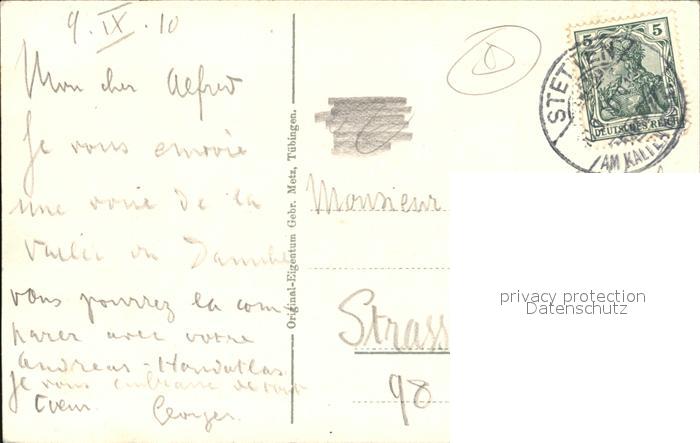 9. IX. 10
Mon cher Alfred
Je vous envoie
une vue de la
Vallée du Danube
vous pourrez la com-
parer avec votre
Andrees-Handatlas
Je vous embrasse de tout
Coeur. Georges.
Original-Eigentum Gebr. Metz, Tübingen.
5 5
DEUTSCHES REICH
STETTEN
AM KALTE
Monsieur
Strass
98
privacy protection
Datenschutz